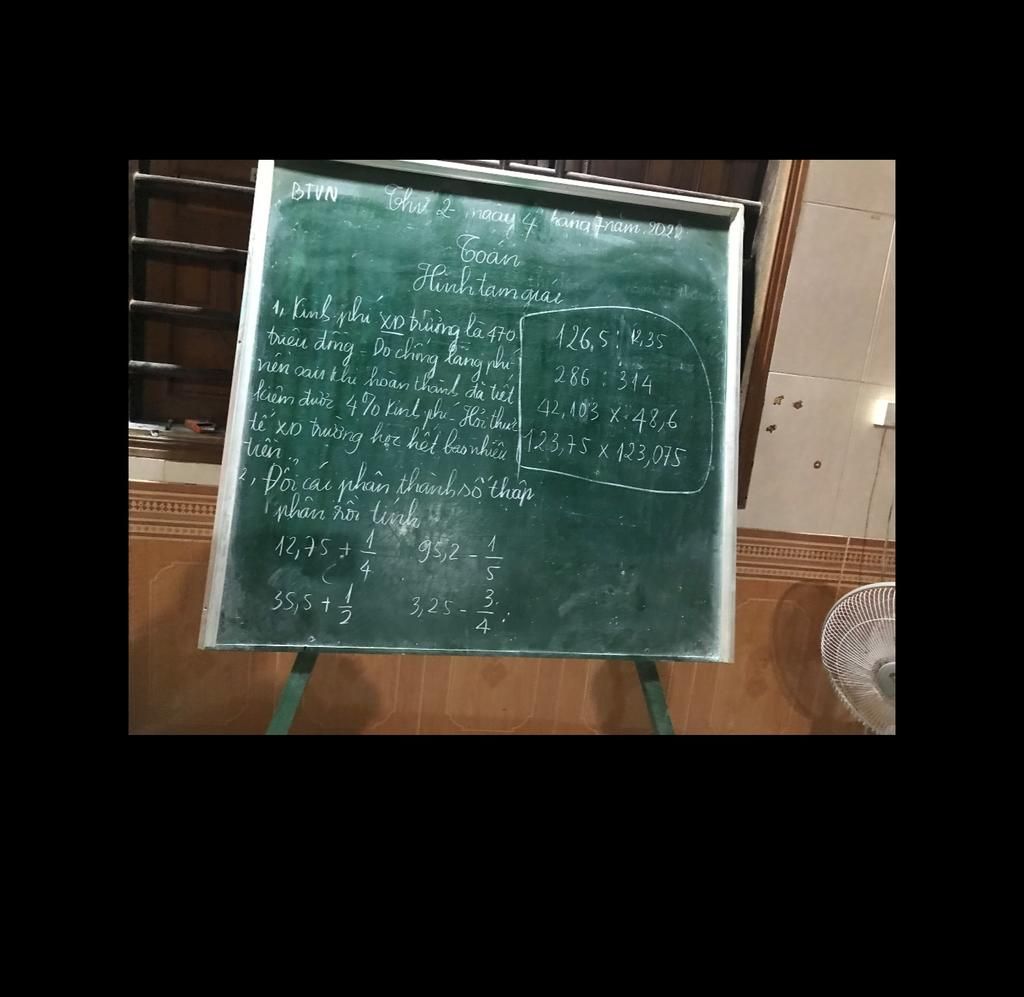 BTVN
Thứ 2 ngày 4 tháng 7 năm 2022
Toán
Hình tam giác
1, Kinh phí XD trường là 470
triệu đồng. Do chống lãng phí
nên sau khi hoàn thành đã tiết
kiệm được 4% kinh phí. Hỏi thực
tế XD trường học hết bao nhiêu
tiền.
2, Đổi các phân thành số thập
phân rồi tính
12,75 + 1/4 95,2 - 1/5
35,5 + 1/2 3,25 - 3/4
126,5 : 12,35
286 : 314
42,103 x 48,6
123,75 x 123,075